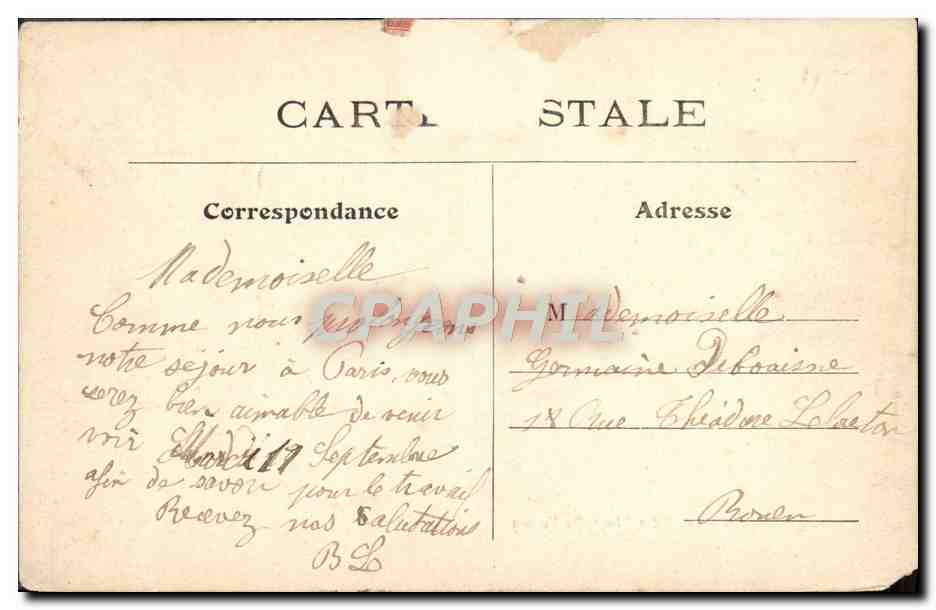 CARTE STALE
Correspondance
Adresse
Mademoiselle
Comme nous prolongeons
notre séjour à Paris, vous
serez bien aimable de venir
voir Mardi 19 Septembre
afin de savoir pour le travail
Recevez nos Salutations
B L
Mademoiselle
Germaine
18 Rue Théodore
Rouen
CPAPHIL